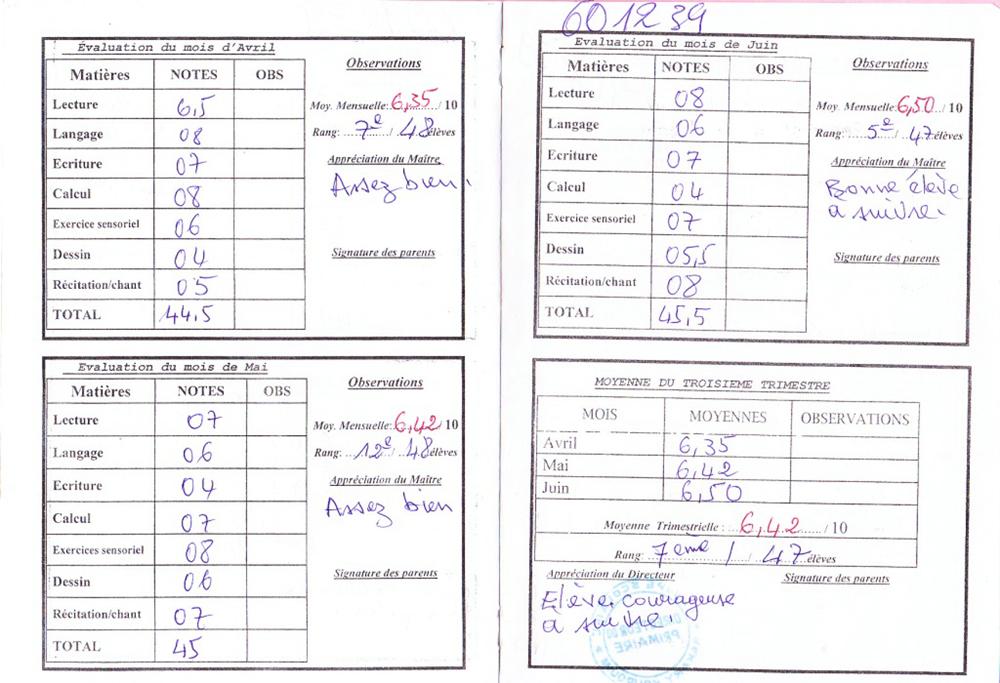 601239
Évaluation du mois d'Avril
Matières NOTES OBS
Lecture 6,5
Langage 08
Ecriture 07
Calcul 08
Exercice sensoriel 06
Dessin 04
Récitation/chant 05
TOTAL 44,5
Observations
Moy. Mensuelle: 6,35 / 10
Rang: 7e / 48 élèves
Appréciation du Maître
Assez bien.
Signature des parents
Evaluation du mois de Mai
Matières NOTES OBS
Lecture 07
Langage 06
Ecriture 04
Calcul 07
Exercices sensoriel 08
Dessin 06
Récitation/chant 07
TOTAL 45
Observations
Moy. Mensuelle: 6,42 10
Rang: 12e / 48 élèves
Appréciation du Maître
Assez bien
Signature des parents
Evaluation du mois de Juin
Matières NOTES OBS
Lecture 08
Langage 06
Ecriture 07
Calcul 04
Exercice sensoriel 07
Dessin 05,5
Récitation/chant 08
TOTAL 45,5
Observations
Moy. Mensuelle: 6,50 / 10
Rang: 5e / 47 élèves
Appréciation du Maître
Bonne élève
à suivre.
Signature des parents
MOYENNE DU TROISIEME TRIMESTRE
MOIS MOYENNES OBSERVATIONS
Avril 6,35
Mai 6,42
Juin 6,50
Moyenne Trimestrielle : 6,42 / 10
Rang: 7ème / 47 élèves
Appréciation du Directeur
Signature des parents
Elève courageuse
à suivre.
PRIMAIRE